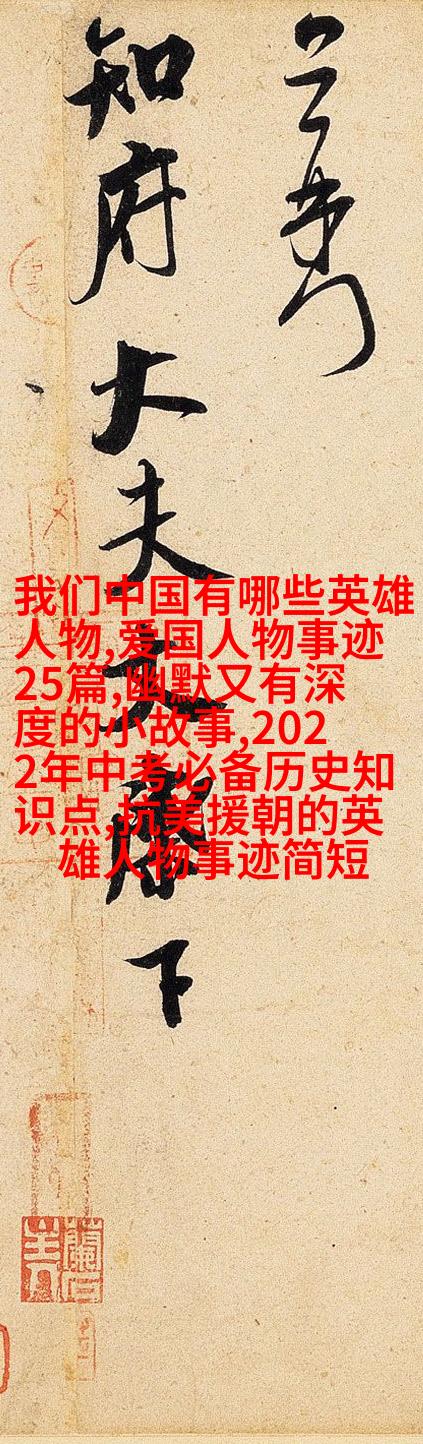 知府大夫
下
我们中国有哪些英雄
人物,爱国人物事迹
25篇,幽默又有深
度的小故事,202
2年中考必备历史知
识点,抗美援朝的英
雄人物事迹简短